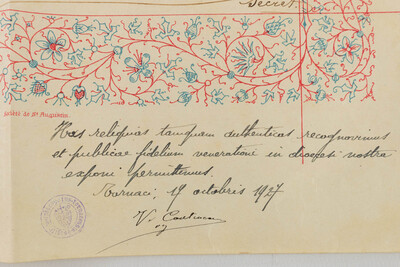 Secret.
Société de St Augustin.
Has reliquias tamquam authenticas recognovimus
et publicae fidelium venerationi in diocesi nostra
exponi permittimus.
Tornaci, 19 octobris 1927
V.